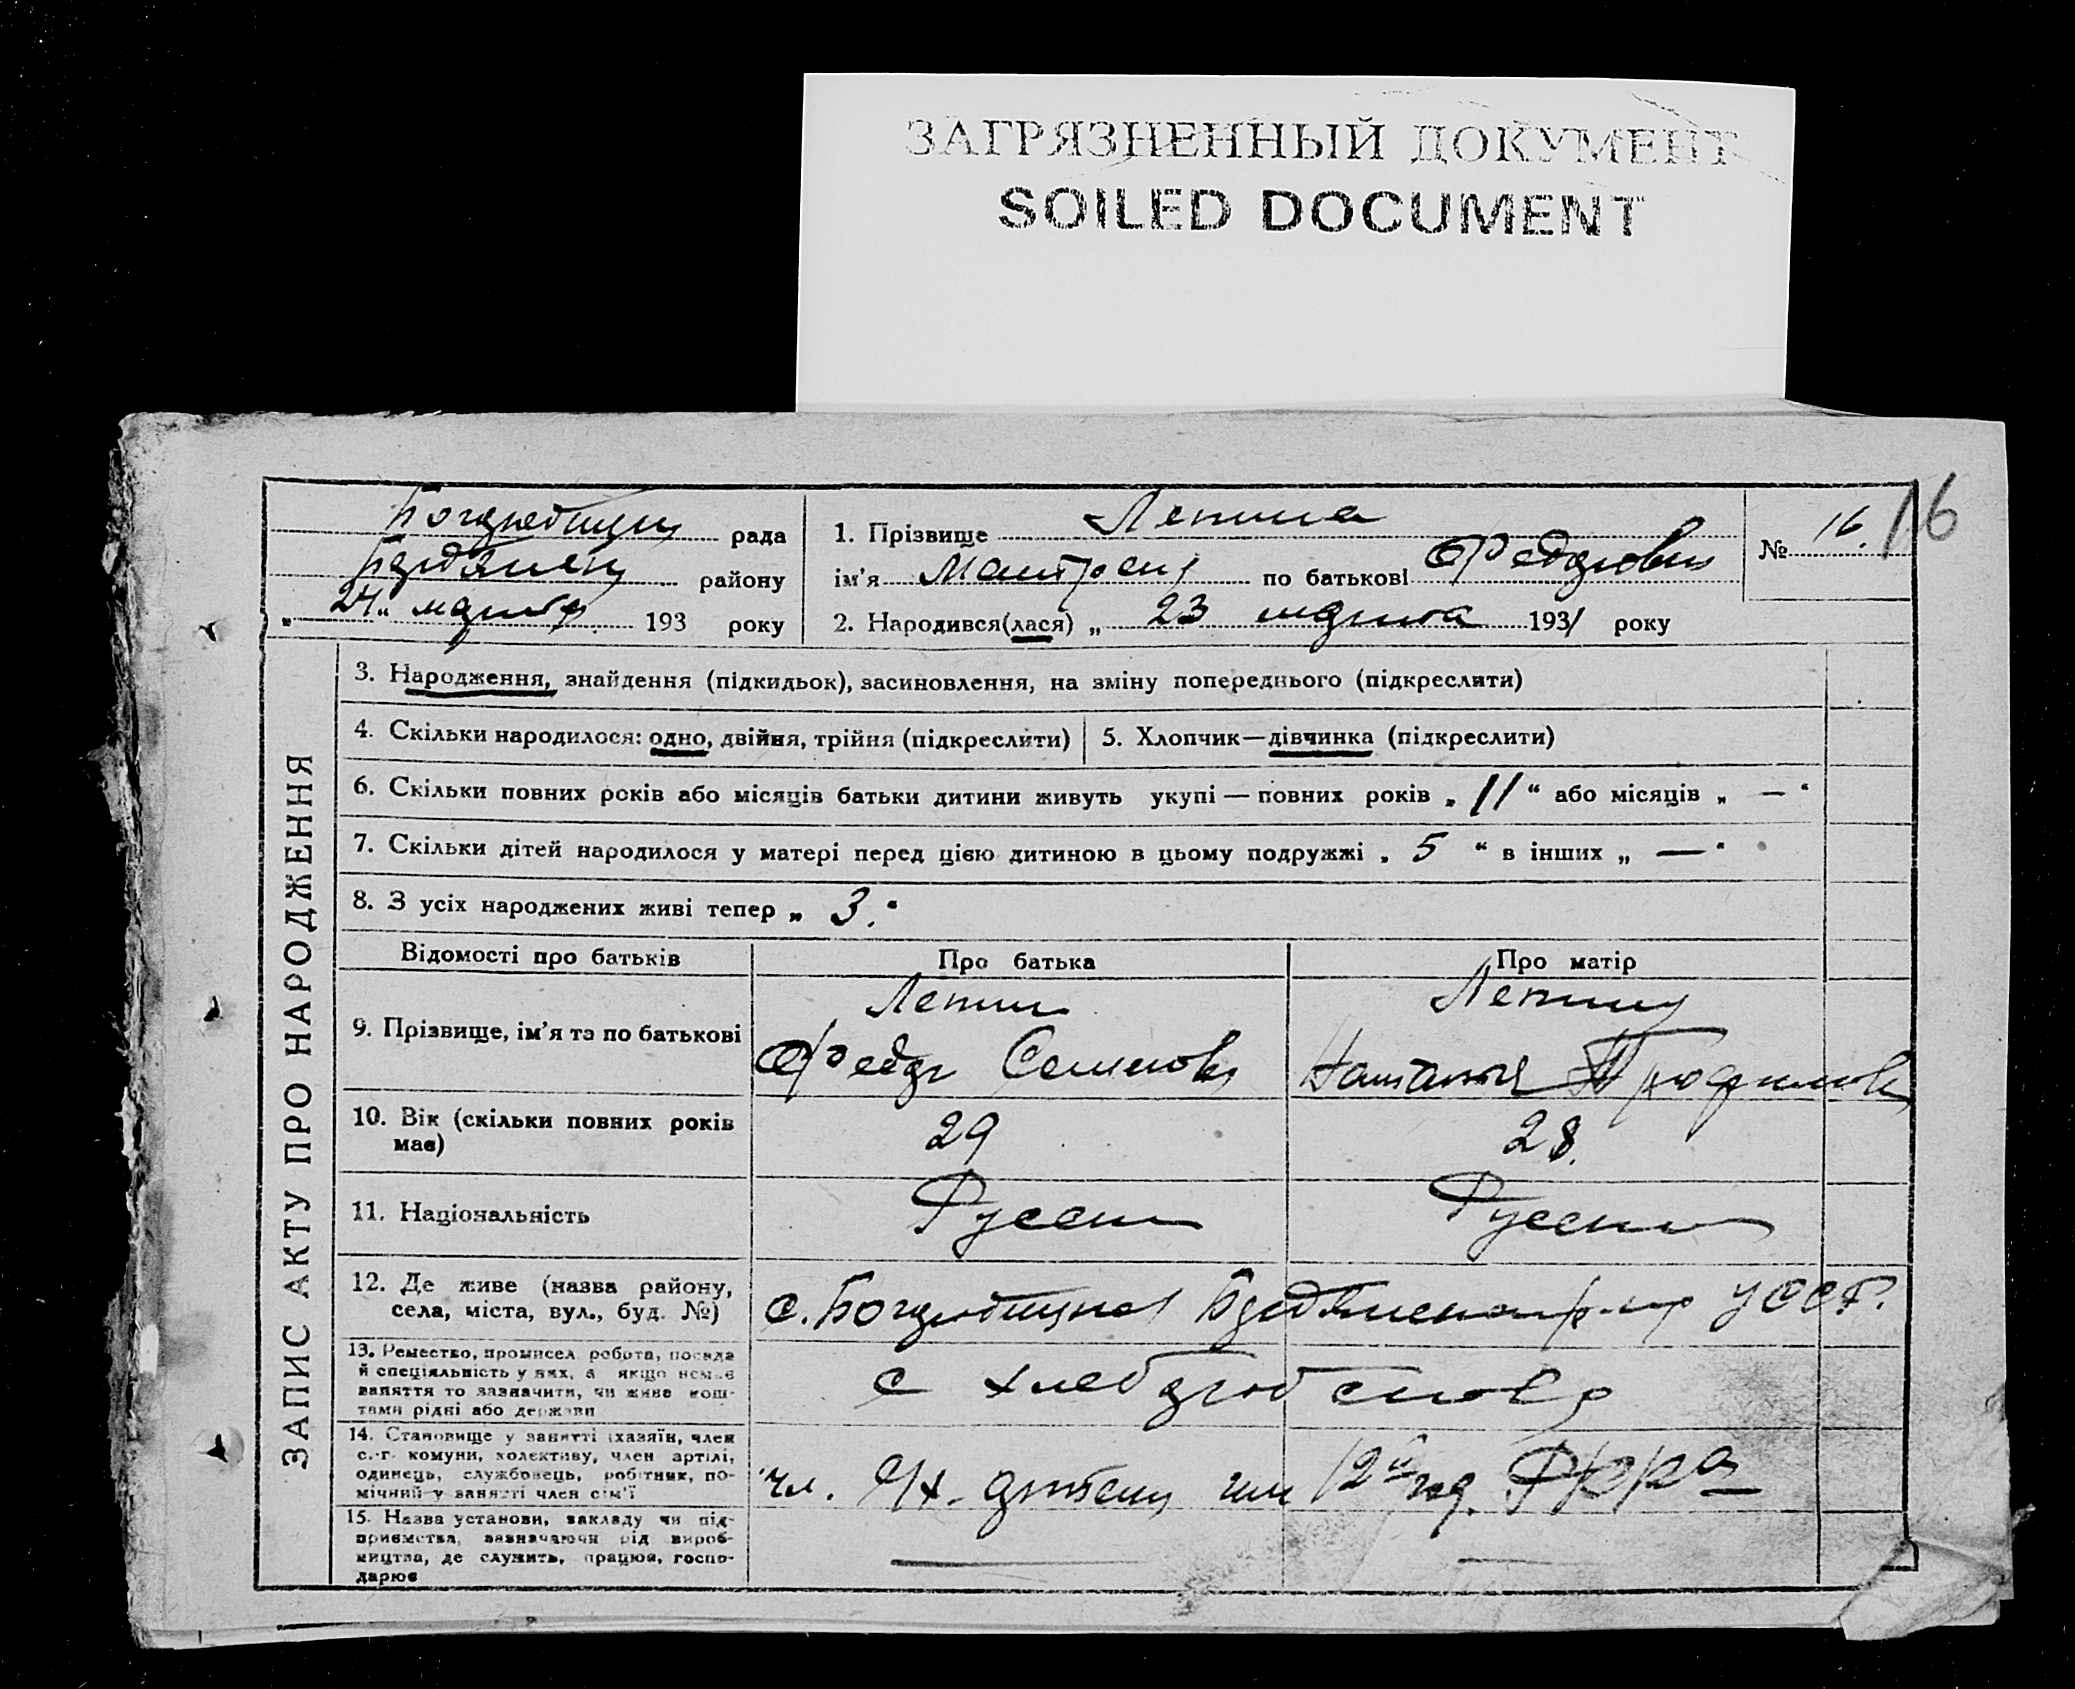 ЗАГРЯЗНЕННЫЙ ДОКУМЕНТ
SOILED DOCUMENT
рада
району
„ 24 “ марта 193 року
1. Прізвище Лепина
ім'я по батькові
№ 16. 16
2. Народився(лася) „ 23 марта 1931 року
ЗАПИС АКТУ ПРО НАРОДЖЕННЯ
3. Народження, знайдення (підкидьок), засиновлення, на зміну попереднього (підкреслити)
4. Скільки народилося: одно, двійня, трійня (підкреслити)
5. Хлопчик—дівчинка (підкреслити)
6. Скільки повних років або місяців батьки дитини живуть укупі — повних років „ 11 “ або місяців „ — “
7. Скільки дітей народилося у матері перед цією дитиною в цьому подружжі „ 5 “ в інших „ — “
8. З усіх народжених живі тепер „ 3. “
Відомості про батьків Про батька Про матір
9. Прізвище, ім'я та по батькові
Лепин
Федор Семенов
Лепину
Наталья
10. Вік (скільки повних років має)
29
28.
11. Національність
12. Де живе (назва району,
села, міста, вул., буд. №)
с. УССР.
13. Ремество, промисел робота, посада
й спеціяльність у них, а якщо немає
заняття то зазначити, чи живе кош-
тами рідні або держави
с
14. Становище у занятті (хазяїн, член
с.-г. комуни, колективу, член артілі,
одинець, службовець, робітник, по-
мічний у занятті член сім'ї
чл. с/х. артели им 12й
15. Назва установи, закладу чи під-
приємства, зазначаючи рід вироб-
ництва, де служить, працює, госпо-
дарює